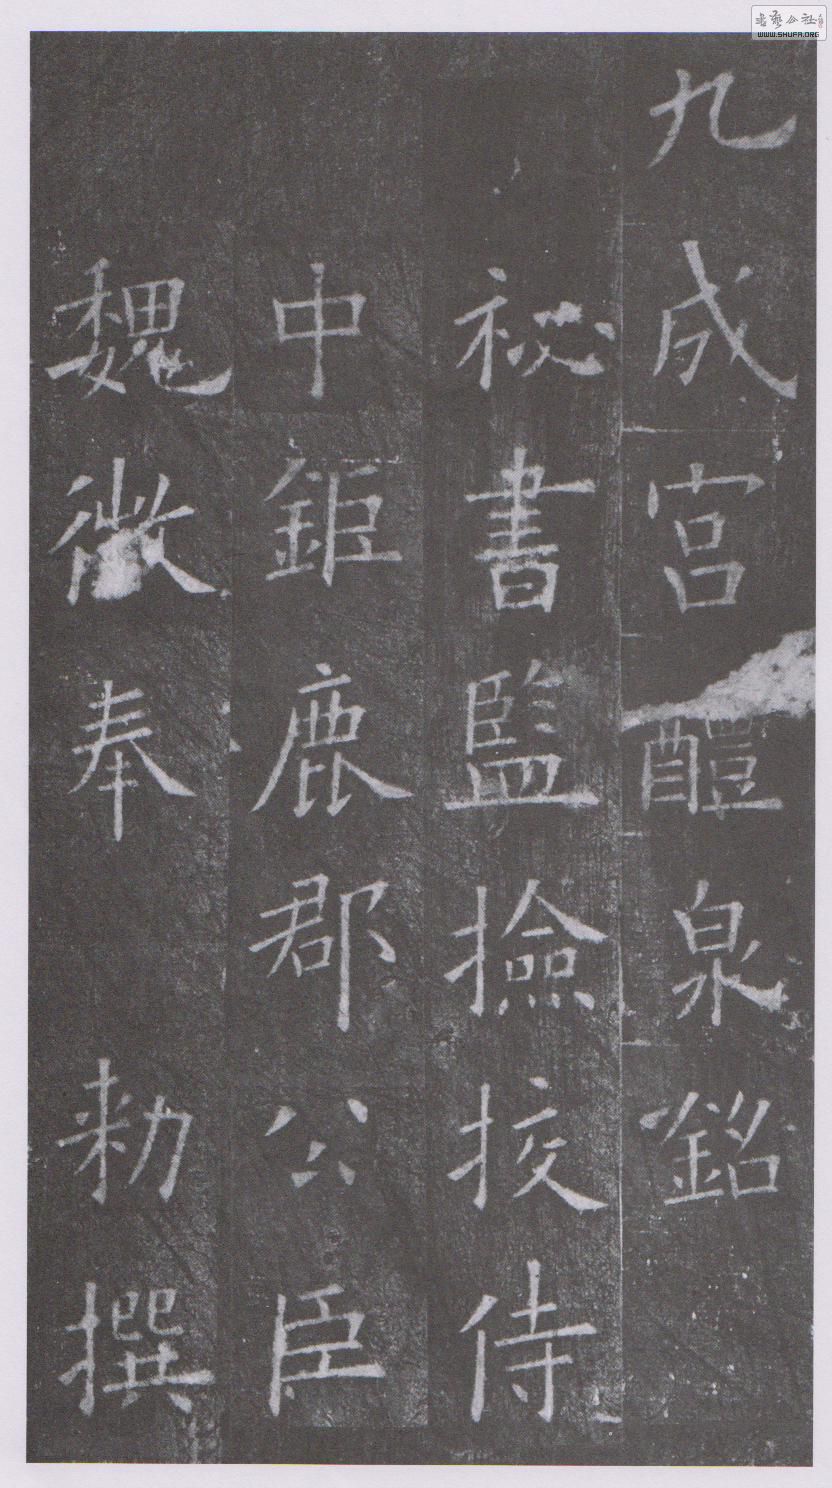 九成宮醴泉銘
祕書監撿挍侍
中鉅鹿郡公臣
魏徵奉 敕撰
WWW.SHUFA.ORG